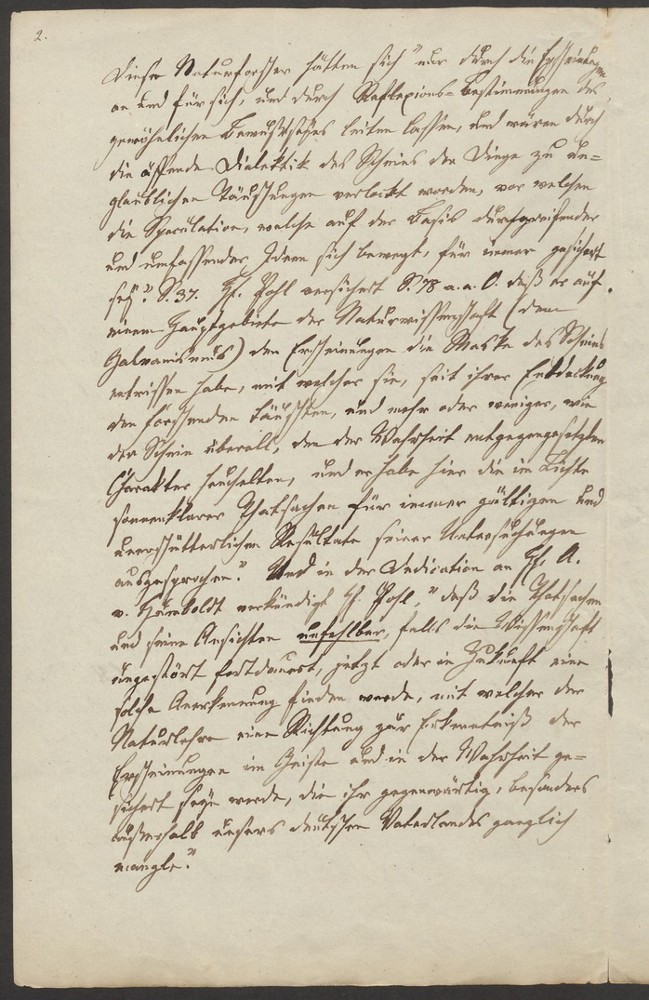 2.
Dieser Naturforscher hätten sich "nur durch die Erscheinungen
an und für sich, und durch Reflexions-Bestimmungen des
gewöhnlichen Bewußtseyns leiten lassen, und wären durch
die äffende Dialektik des Scheines der Dinge zu un=
glaublichen Täuschungen verlockt worden, vor welchen
die Speculation, welche auf der Basis durchgreifender
und umfassender Ideen sich bewegt, für immer gesichert
sey." S. 37. H. Pohl versichert S. 78 a. a. O. daß er auf
einem Hauptgebiete der Naturwissenschaft (dem
Galvanismus) den Erscheinungen die Maske des Scheins
entrissen habe, mit welcher sie, seit ihrer Entdeckung
den Forschenden täuschten, und mehr oder weniger, wie
der Schein überall, den der Wahrheit entgegengesetzten
Charakter heuchelten, und er habe hier die im Lichte
sonnenklarer Thatsachen für immer gültigen und
unerschütterlichen Resultate seiner Untersuchungen
ausgesprochen." Und in der Dedication an H. A.
v. Humboldt verkündigt H. Pohl, "daß die Thatsachen
und seine Ansichten unfehlbar, falls die Wissenschaft
ungestört fortdauert, jetzt oder in Zukunft eine
solche Anerkennung finden werde, mit welcher der
Naturlehre eine Richtung zur Erkenntniß der
Erscheinungen im Geiste und in der Wahrheit ge=
sichert seyn werde, die ihr gegenwärtig, besonders
außerhalb unsers deutschen Vaterlandes gänzlich
mangle."